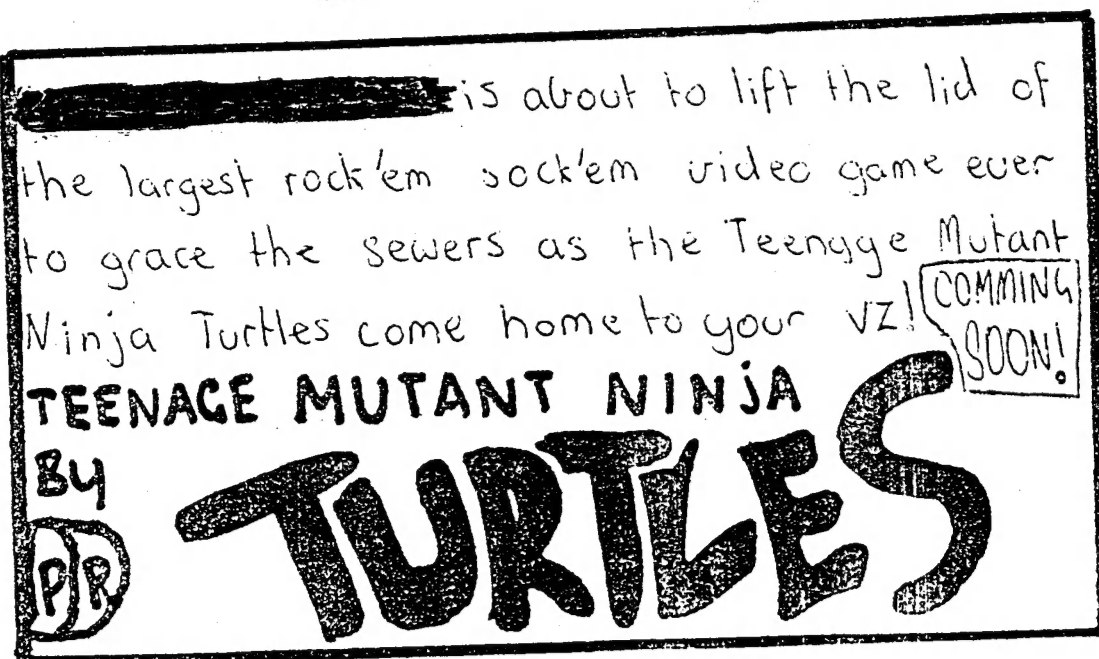 is about to lift the lid of
the largest rock'em sock'em video game ever
to grace the sewers as the Teengge Mutant
Ninja Turtles come home to your VZ!
COMMING
SOON!
TEENAGE MUTANT NINJA
TURTLES
By
PR